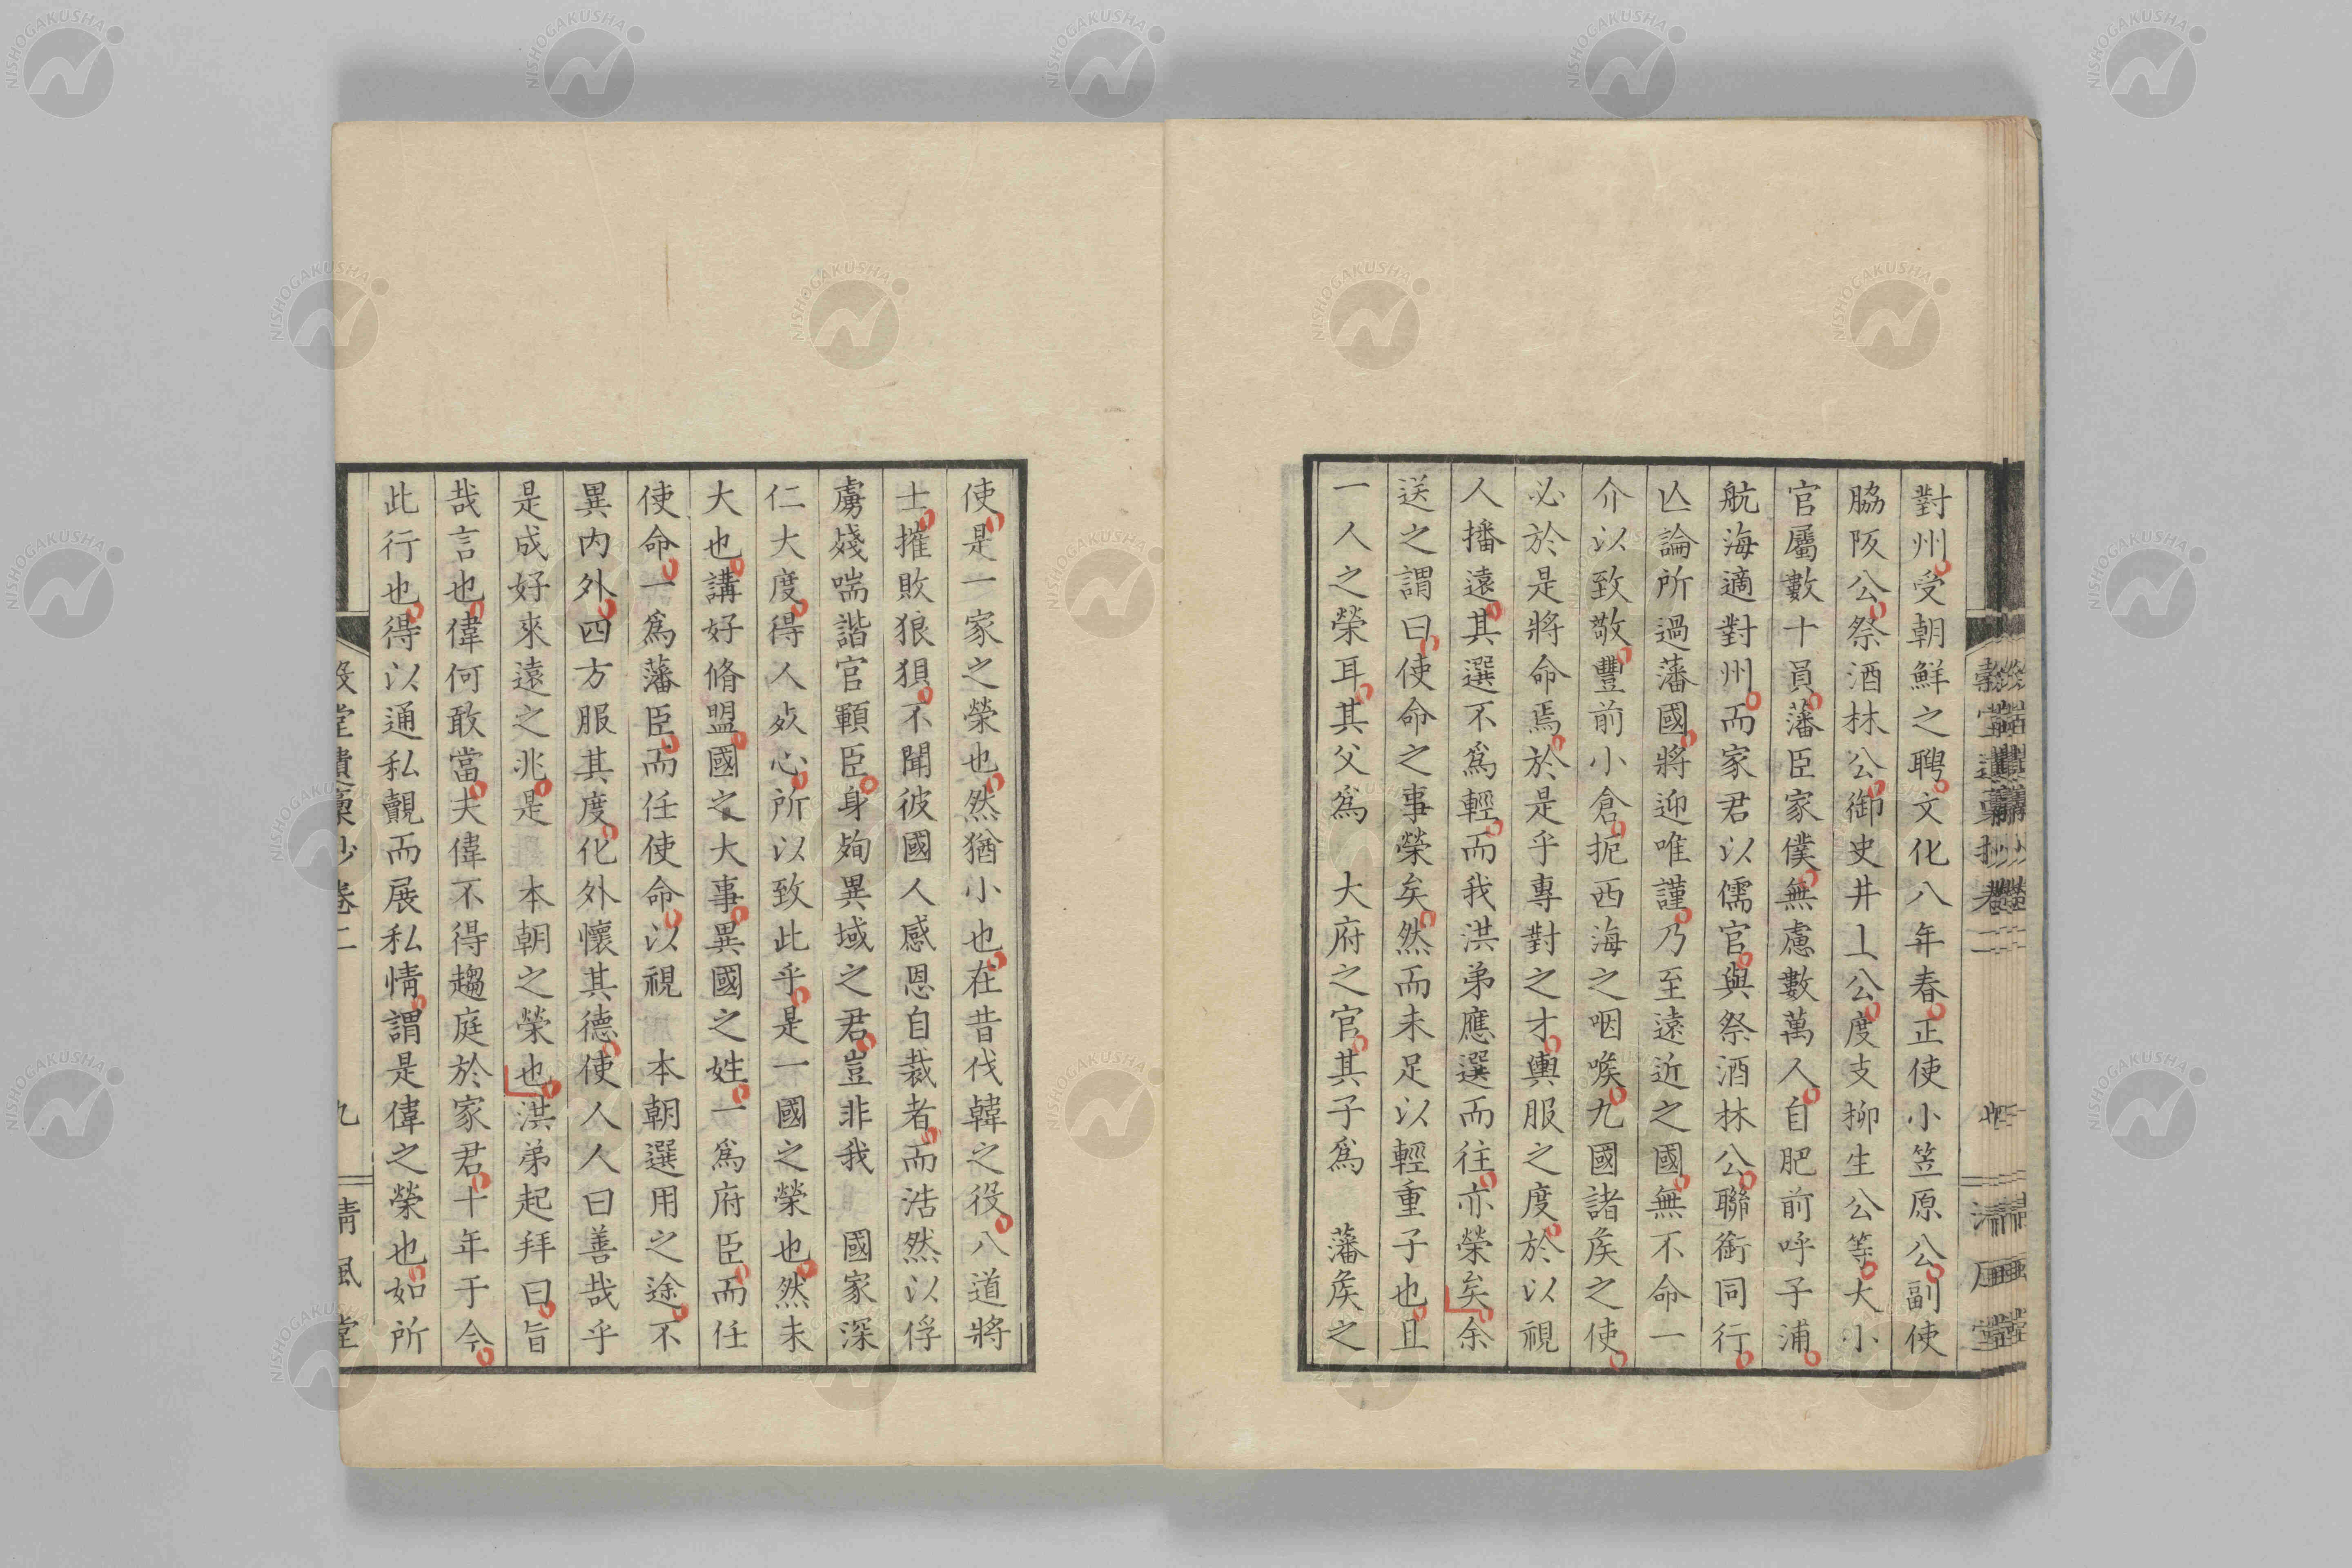 對州受朝鮮之聘文化八年春正使小笠原公副使
脇阪公祭酒林公御史井上公度支柳生公等大小
官屬數十員藩臣家僕無慮數萬人自肥前呼子浦
航海適對州而家君以儒官與祭酒林公聯銜同行
亾論所過藩國將迎唯謹乃至遠近之國無不命一
介以致敬豐前小倉扼西海之咽喉九國諸矦之使
必於是將命焉於是乎專對之才輿服之度於以視
人播遠其選不爲輕而我洪弟應選而往亦榮矣余
送之謂曰使命之事榮矣然而未足以輕重子也且
一人之榮耳其父爲 大府之官其子爲 藩矦之
使是一家之榮也然猶小也在昔伐韓之役八道將
士摧敗狼狽不聞彼國人感恩自裁者而浩然以俘
虜殘喘諧官顋臣身殉異域之君豈非我 國家深
仁大度得人死心所以致此乎是一國之榮也然未
大也講好脩盟國之大事異國之姓一爲府臣而任
使命一爲藩臣而任使命以視 本朝選用之途不
異内外四方服其度化外懷其德使人人曰善哉乎
是成好來遠之兆是 本朝之榮也洪弟起拜曰旨
哉言也偉何敢當夫偉不得趨庭於家君十年于今
此行也得以通私覿而展私情謂是偉之榮也如所
穀堂遺稾抄卷二 九 清風堂